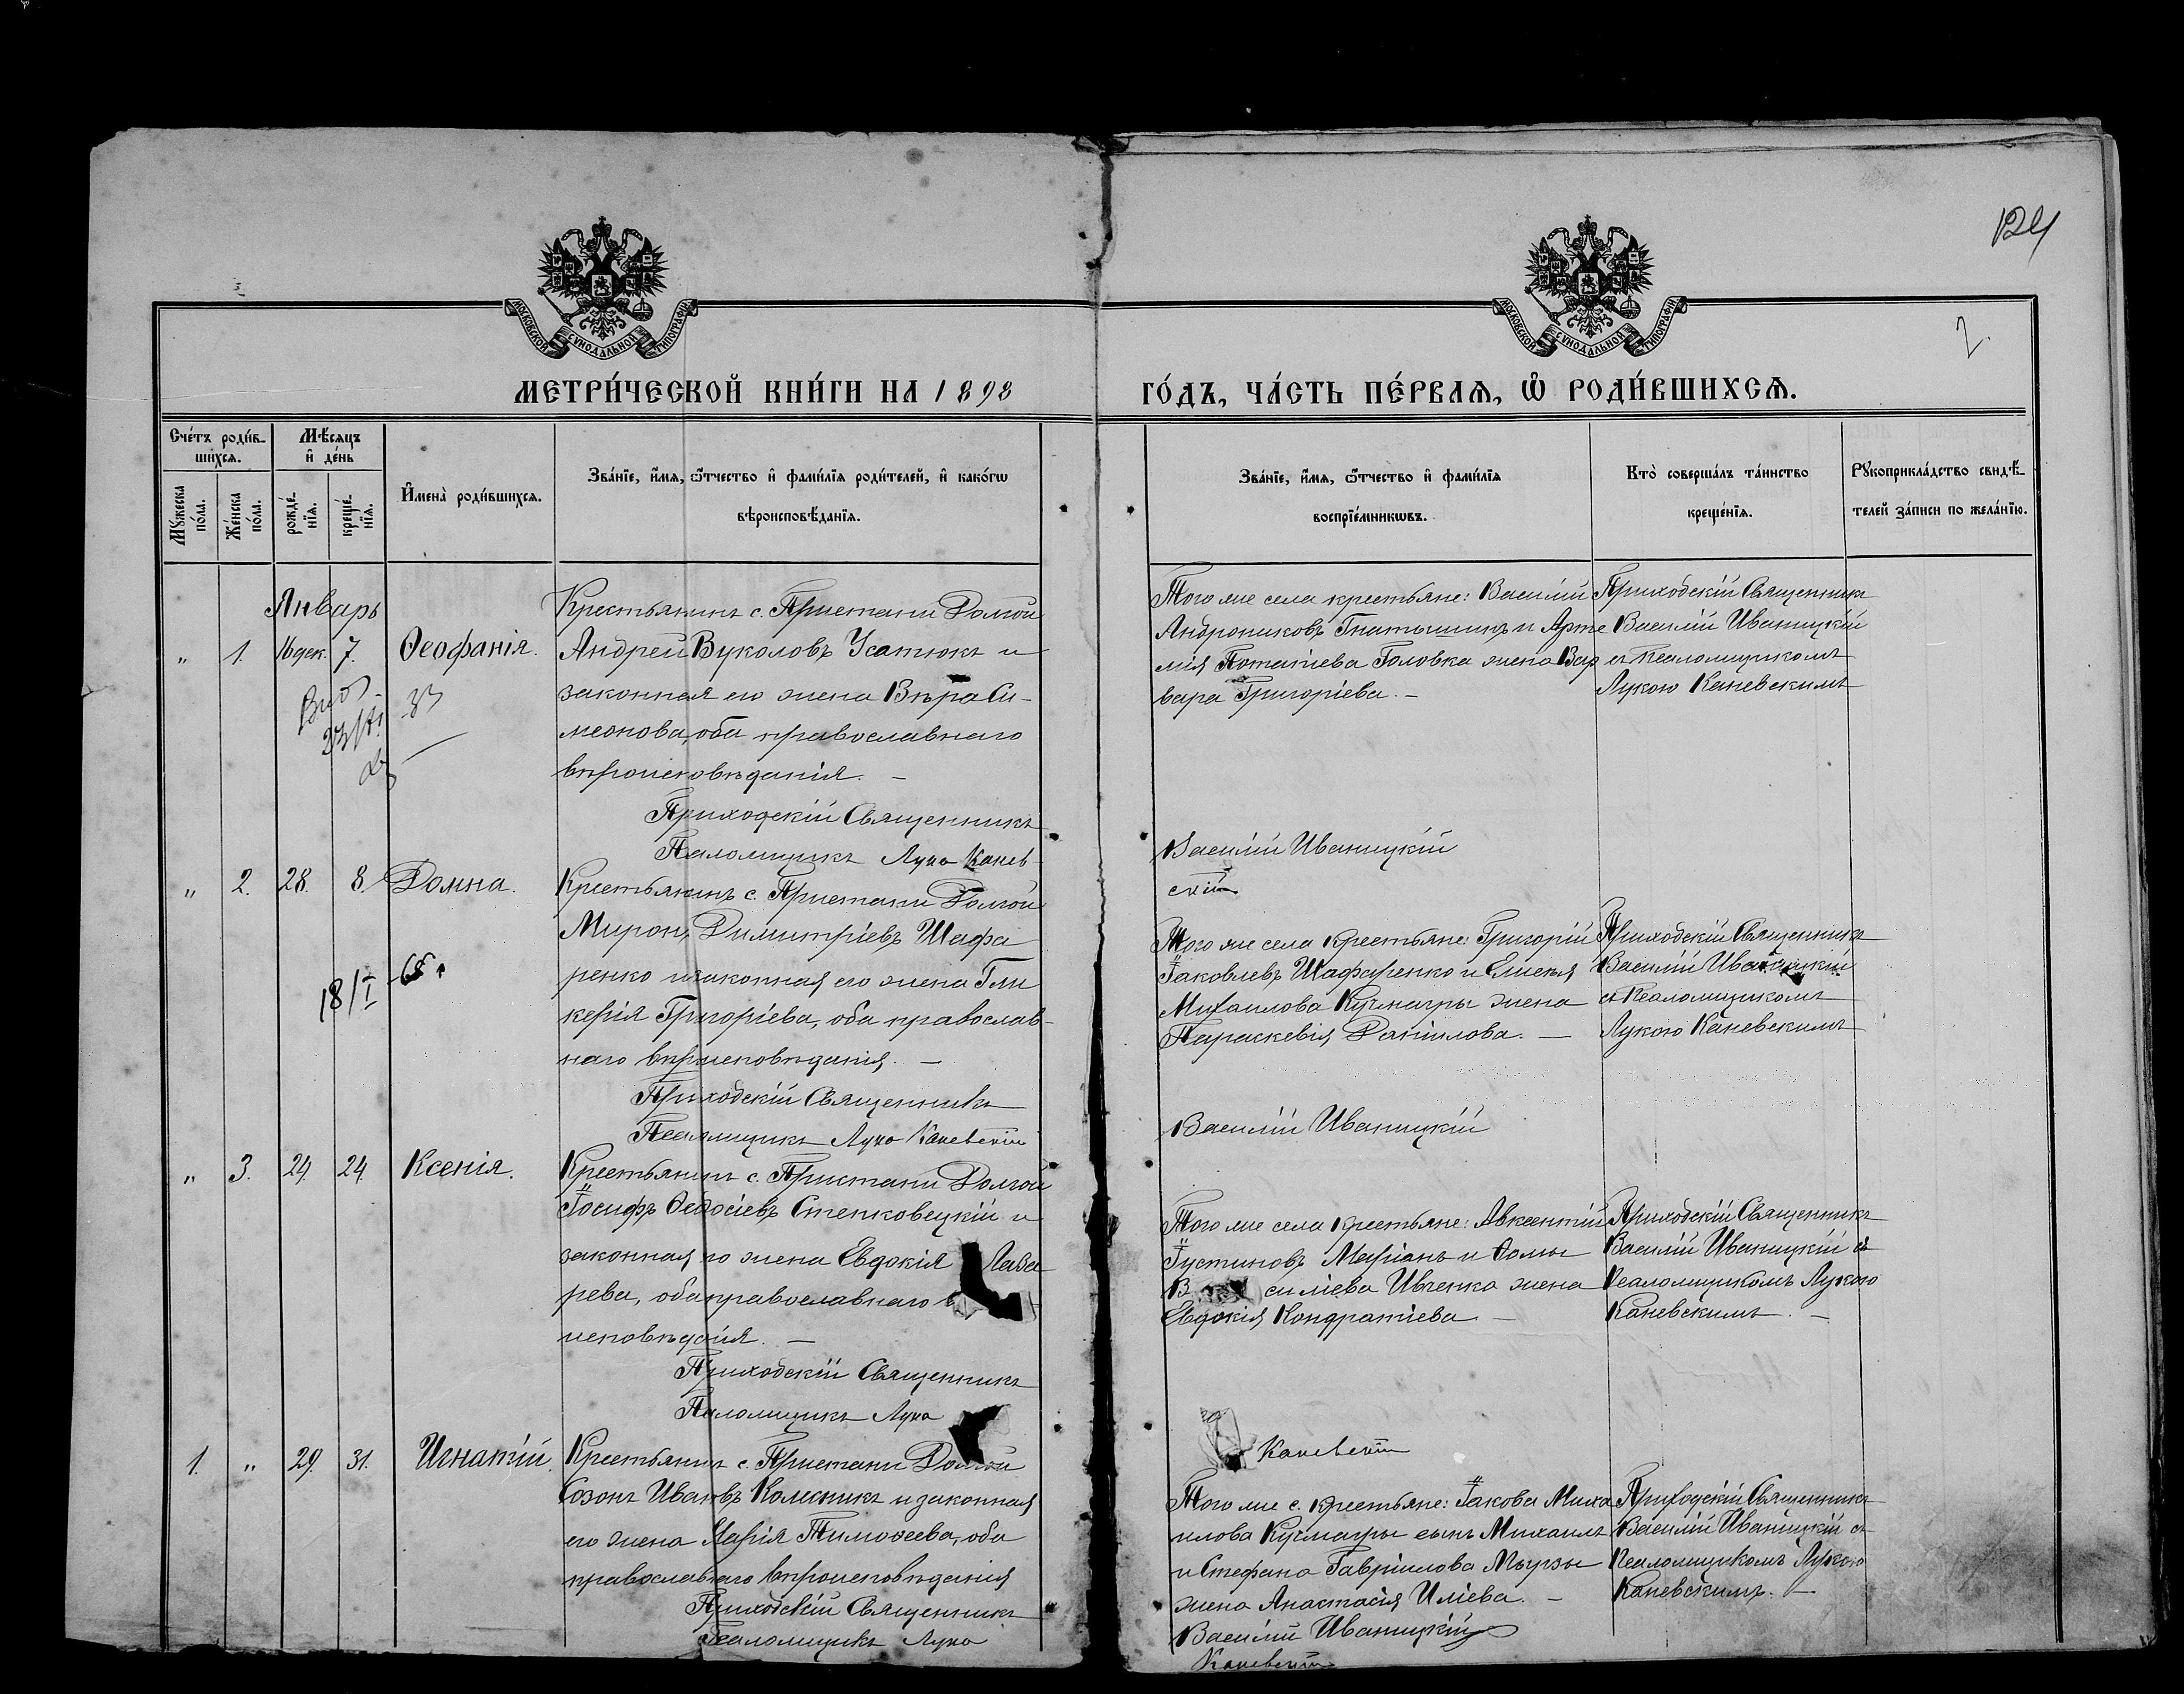 124
2.
МОСКОВСКОЙ СѴНОДАЛЬНОЙ ТИПОГРАФІИ
МОСКОВСКОЙ СѴНОДАЛЬНОЙ ТИПОГРАФІИ
МЕТРИ́ЧЕСКОЙ КНИ́ГИ НА 1898
ГО́ДЪ, ЧА́СТЬ ПЕ́РВАѦ, Ѽ РОДИ́ВШИХСѦ.
Сче́тъ роди́в-
шихсѧ.
Мѣ́сѧцъ
и҆ де́нь
Мꙋ́жеска
по́ла.
Же́нска
по́ла.
рожде́-
нїѧ.
креще́-
нїѧ.
И҆мена̀ роди́вшихсѧ.
Зва́нїе, и҆́мѧ, ѻ҆́тчество и҆ фами́лїѧ роди́телей, и҆ како́гѡ
вѣроисповѣ́данїѧ.
Зва́нїе, и҆́мѧ, ѻ҆́тчество и҆ фами́лїѧ
воспрїе́мникѡвъ.
Кто̀ соверша́лъ та́инство
креще́нїѧ.
Рꙋкоприкла́дство свидѣ́-
телей за́писи по жела́нїю.
Январь
" 1. 16 дек. 7. Ѳеофанія.
Крестьянинъ с. Пристани Долгой
Андрей Вуколовъ Усатюкъ и
законная его жена Вѣра Си-
меонова, оба православнаго
вѣроисповѣданія. –
Приходскій Священникъ
Псаломщикъ Лука Канев-
Того же села крестьяне: Василій
Андрониковъ Гнатышинъ и Арте
мія Потапіева Головка жена Вар
вара Григоріева. –
Василій Иваницкій
скій
Приходскій Священникъ
Василій Иваницкій
съ Псаломщикомъ
Лукою Каневскимъ
" 2. 28. 8. Домна.
18/I -68
Крестьянинъ с. Пристани Долгой
Миронъ Димитріевъ Шафа
ренко и законная его жена Гли
керія Григоріева, оба православ-
наго вѣроисповѣданія. –
Приходскій Священникъ
Псаломщикъ Лука Каневскій
Того же села крестьяне: Григорій
Іаковлевъ Шафаренко и
Михаилова Кучмагры жена
Параскевія Даніилова. –
Василій Иваницкій
Приходскій Священникъ
Василій Иваницкій
съ Псаломщикомъ
Лукою Каневскимъ
" 3. 24. 24. Ксенія.
Крестьянинъ с. Пристани Долгой
Іосифъ Ѳеодосіевъ Степковецкій и
законная его жена Евдокія Лаза
рева, оба православнаго в
исповѣданія. –
Приходскій Священникъ
Псаломщикъ Лука
Того же села крестьяне: Авксентій
Іустиновъ Маріанъ и Ѳомы
В силіева Ивченка жена
Евдокія Кондратіева –
Каневскій
Приходскій Священникъ
Василій Иваницкій съ
Псаломщикомъ Лукою
Каневскимъ. –
1. " 29. 31. Игнатій.
Крестьянинъ с. Пристани Долгой
Созонъ Ивановъ Колесникъ и законная
его жена Марія Тимоѳеева, оба
православнаго вѣроисповѣданія
Приходскій Священникъ
Псаломщикъ Лука
Того же с. крестьяне: Іакова Миха
илова Кучмагры сынъ Михаилъ
и Стефана Гавріилова Мырзы
жена Анастасія Иліева. –
Василій Иваницкій
Каневскій
Приходскій Священникъ
Василій Иваницкій съ
Псаломщикомъ Лукою
Каневскимъ. –